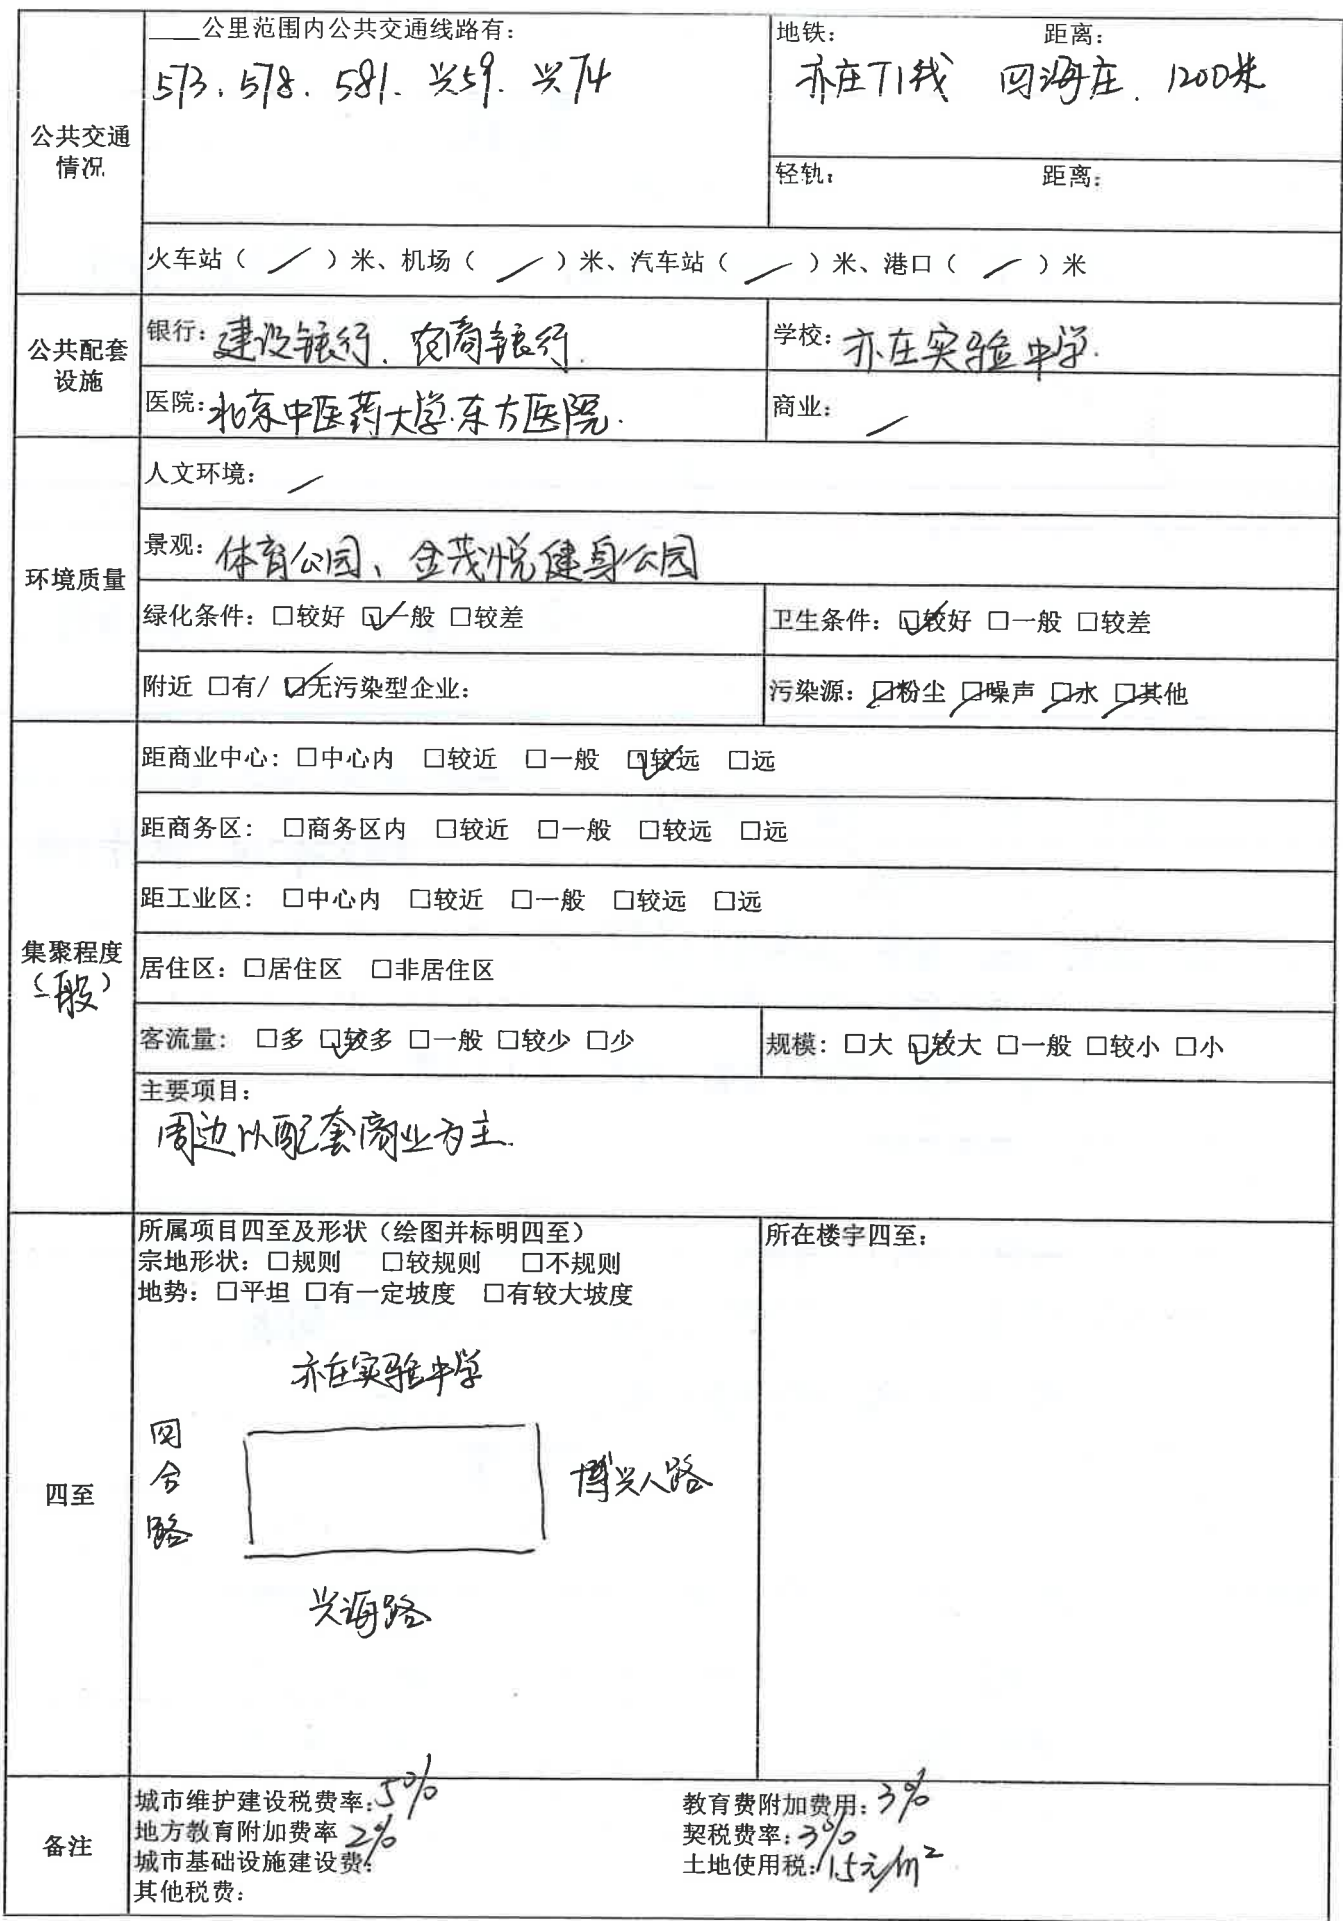 公共交通情况
___公里范围内公共交通线路有：
573、578、581、兴59、兴74
地铁： 距离：
亦庄T1线 四海庄、1200米
轻轨： 距离：
火车站（ ／ ）米、机场（ ／ ）米、汽车站（ ／ ）米、港口（ ／ ）米
公共配套设施
银行：建设银行、农商银行.
学校：亦庄实验中学.
医院：北京中医药大学东方医院.
商业：／
环境质量
人文环境：／
景观：体育公园、金茂悦健身公园
绿化条件：□较好 ☑一般 □较差
卫生条件：☑较好 □一般 □较差
附近 □有/ ☑无污染型企业：
污染源：□粉尘 □噪声 □水 □其他
集聚程度
（一般）
距商业中心：□中心内 □较近 □一般 ☑较远 □远
距商务区： □商务区内 □较近 □一般 □较远 □远
距工业区： □中心内 □较近 □一般 □较远 □远
居住区：□居住区 □非居住区
客流量： □多 ☑较多 □一般 □较少 □少
规模：□大 ☑较大 □一般 □较小 □小
主要项目：
周边以配套商业为主.
四至
所属项目四至及形状（绘图并标明四至）
宗地形状：□规则 □较规则 □不规则
地势：□平坦 □有一定坡度 □有较大坡度
所在楼宇四至：
亦庄实验中学
四合路
博兴八路
兴海路
备注
城市维护建设税费率：5%
教育费附加费用：3%
地方教育附加费率 2%
契税费率：3%
城市基础设施建设费：
土地使用税：1.5元/m²
其他税费：